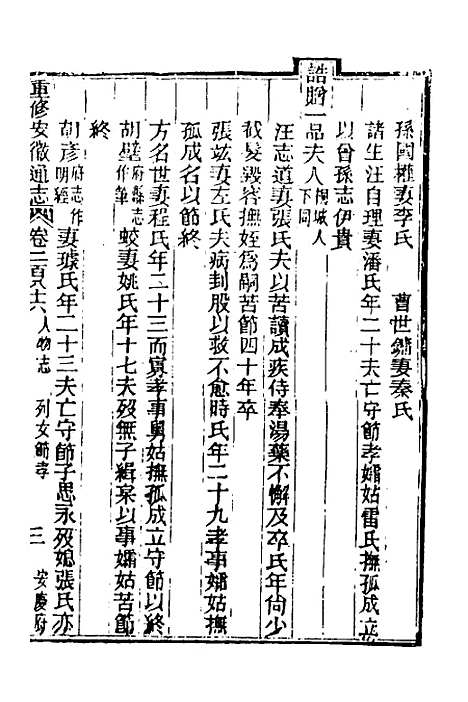 孫國權妻李氏　曹世鏞妻秦氏
諸生汪自理妻潘氏年二十夫亡守節孝孀姑雷氏撫孤成立
以曾孫志伊貴
誥贈一品夫人桐城人下同
汪志道妻張氏夫以苦讀成疾侍奉湯藥不懈及卒氏年尙少
截髮毀容撫姪爲嗣苦節四十年卒
張竑妻左氏夫病刲股以救不愈時氏年二十九孝事孀姑撫
孤成名以節終
方名世妻程氏年二十三而寡孝事舅姑撫孤成立守節以終
胡壁府縣志作筆蛟妻姚氏年十七夫歿無子緝枲以事孀姑苦節
終
胡彥府志作明經妻璩氏年二十三夫亡守節子思永歿媳張氏亦
重修安徽通志　卷二百六十六　人物志　列女節孝　三　安慶府